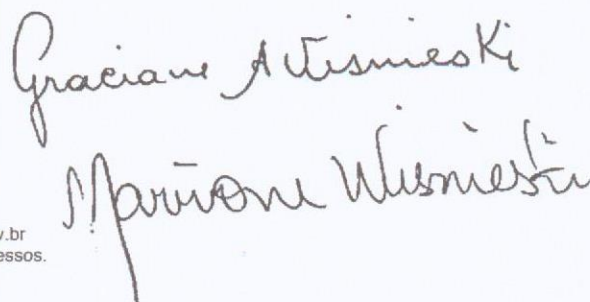 Graciane A Wisnieski
Marivone Wisnieski
v.br
essos.